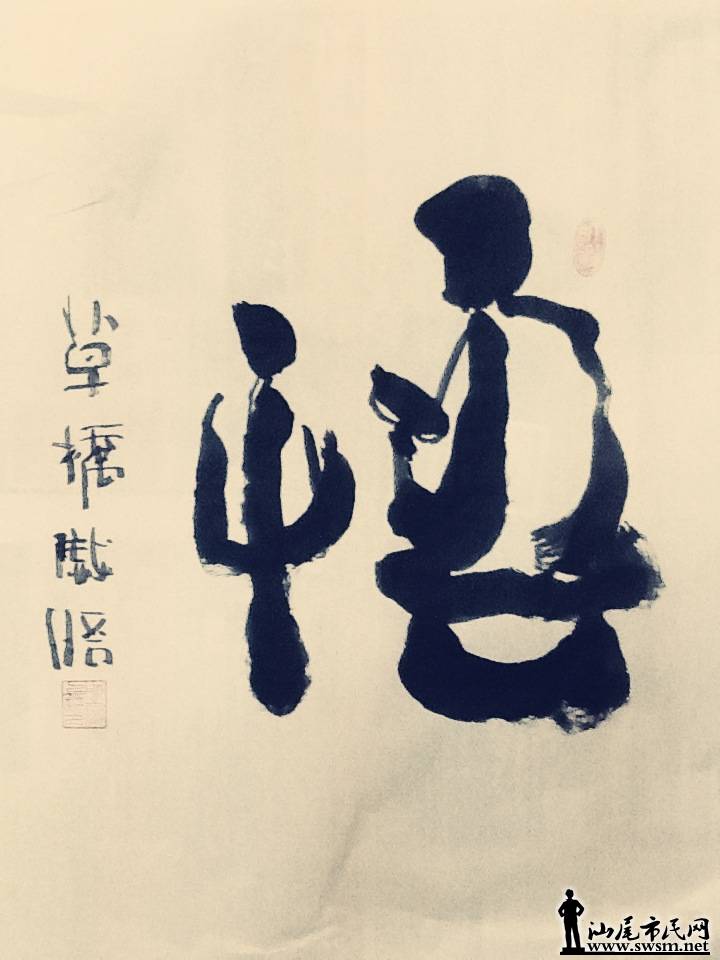 悟
草橋悟
汕尾市民网
www.swsm.net